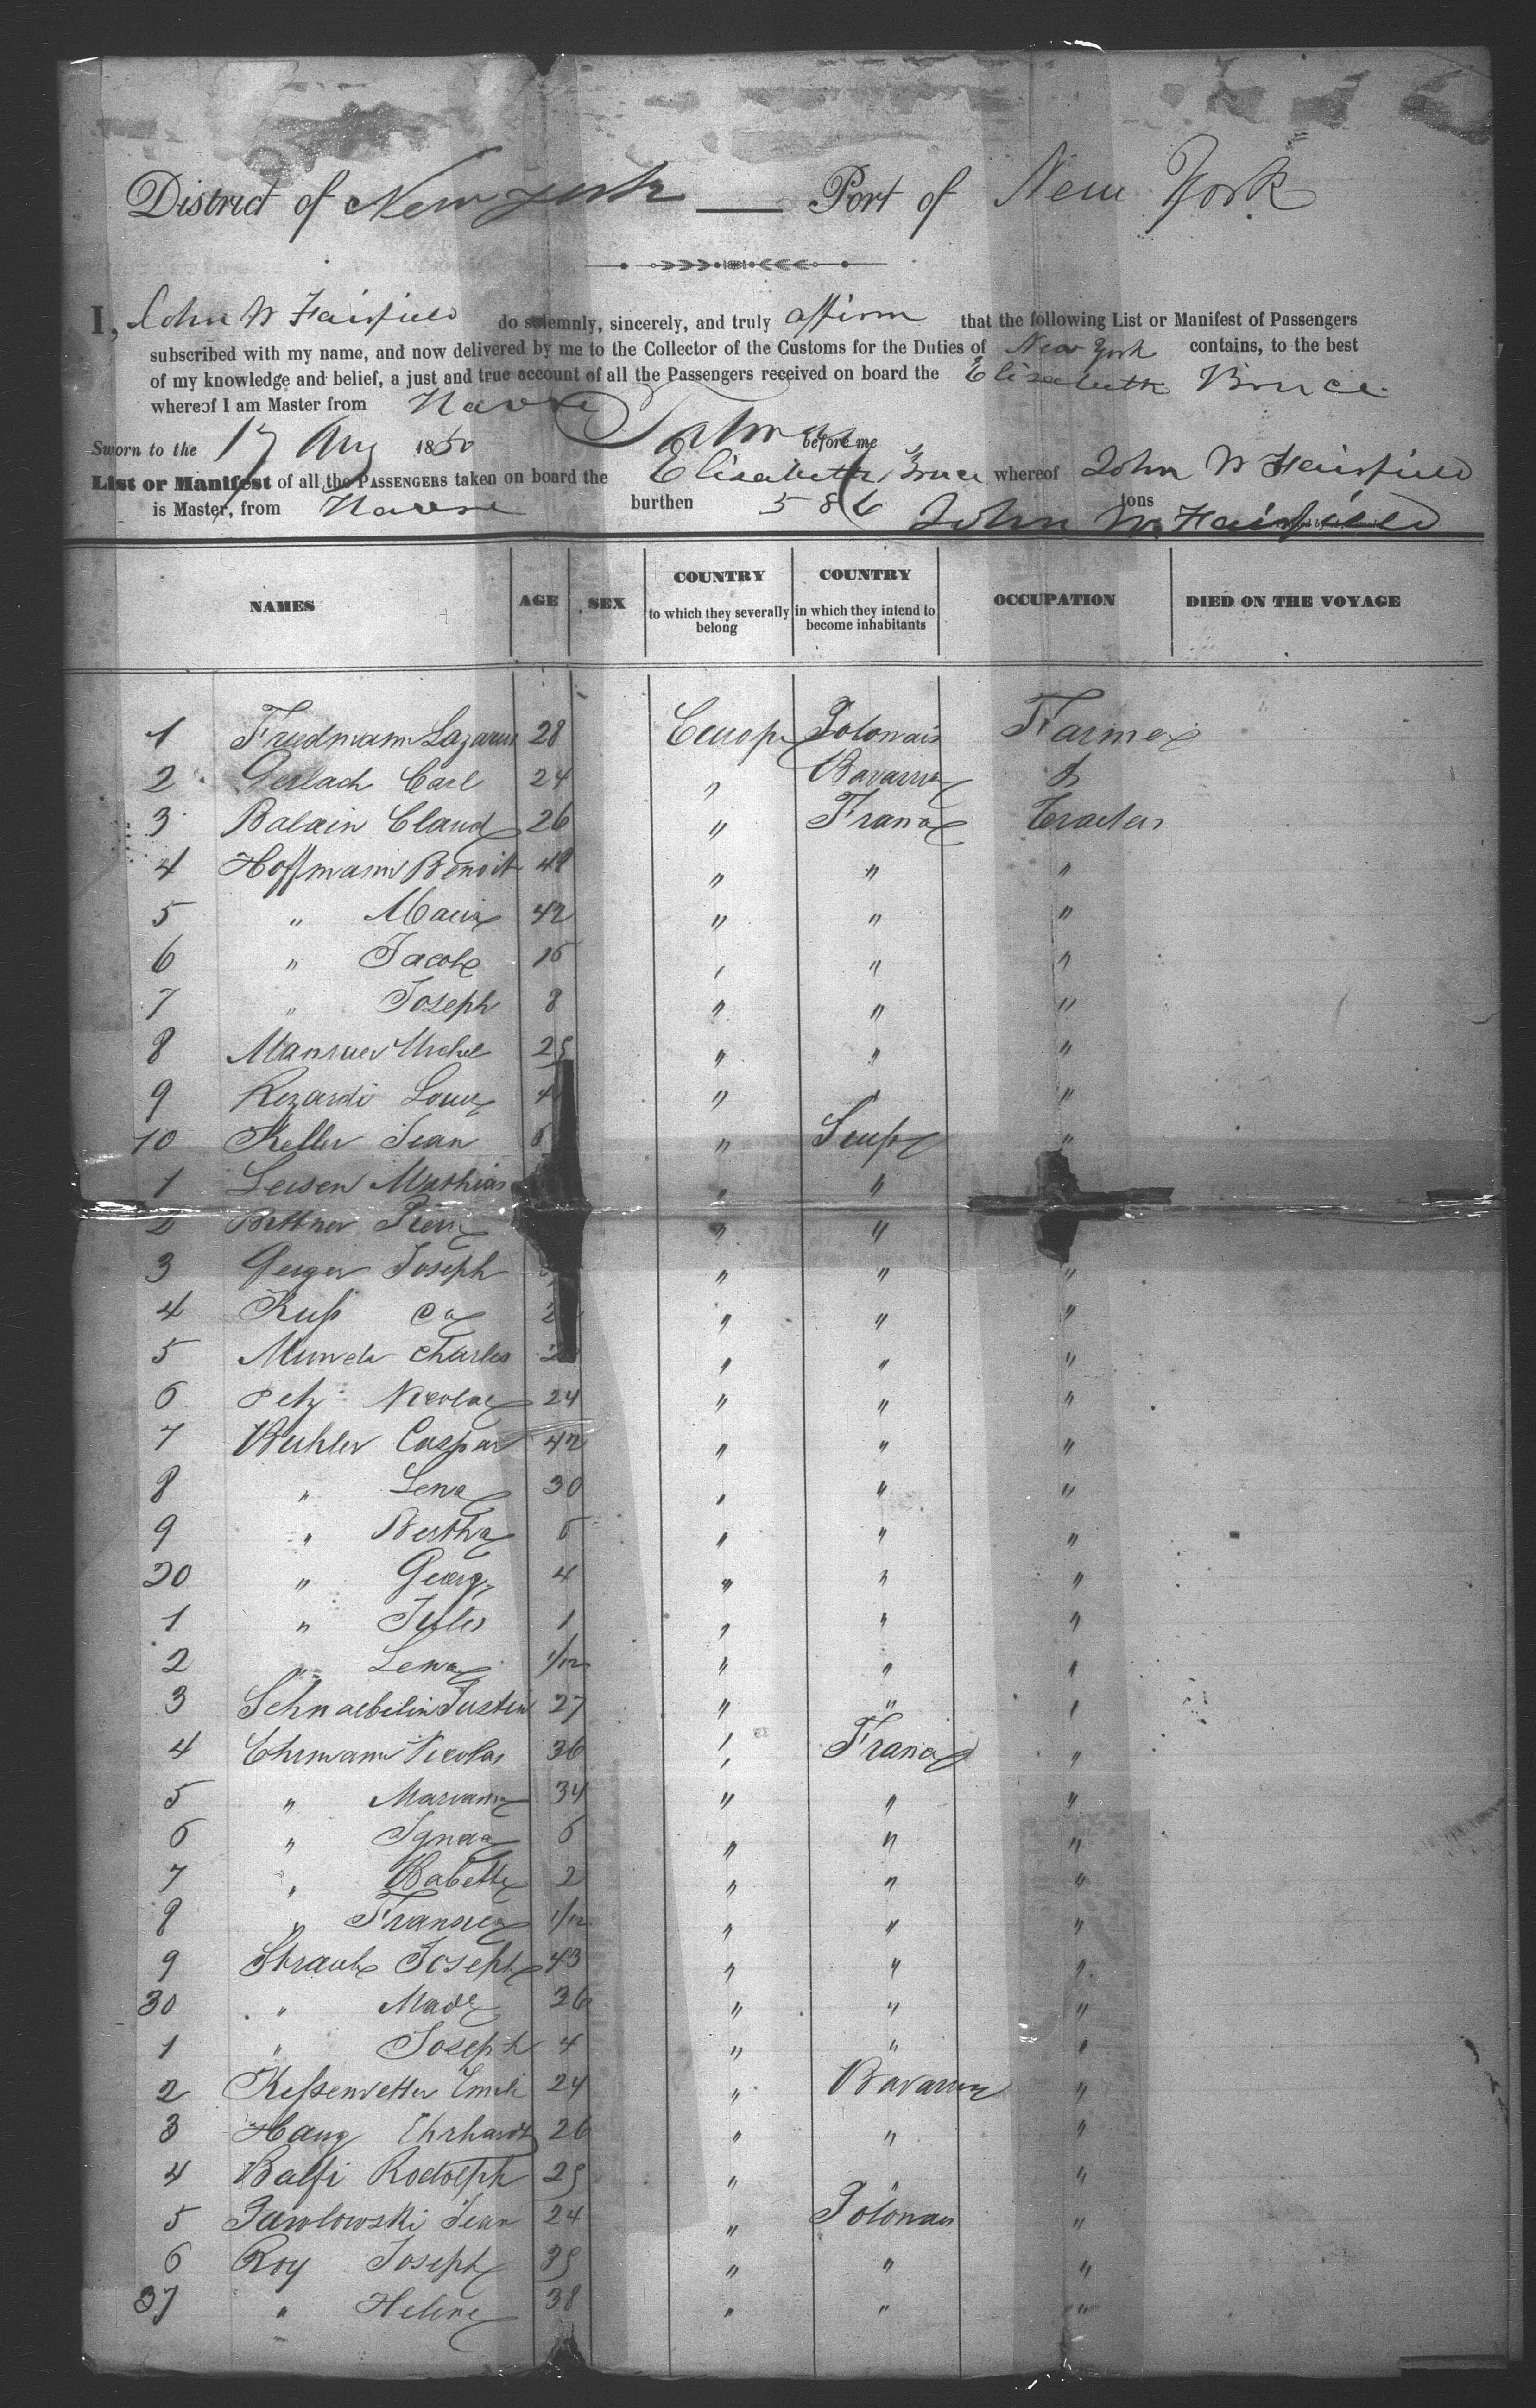 District of New York — Port of New York
I, John W Fairfield do solemnly, sincerely, and truly affirm that the following List or Manifest of Passengers
subscribed with my name, and now delivered by me to the Collector of the Customs for the Duties of New York contains, to the best
of my knowledge and belief, a just and true account of all the Passengers received on board the Elisabeth Bruce
whereof I am Master from Havre
Sworn to the 17 Aug 1850 before me
List or Manifest of all the PASSENGERS taken on board the Elisabeth Bruce whereof John W Fairfield
is Master, from Havre burthen 586 tons John W. Fairfield
NAMES AGE SEX COUNTRY to which they severally belong COUNTRY in which they intend to become inhabitants OCCUPATION DIED ON THE VOYAGE
1 Friedmann Lazarus 28 Europe Polonais Farmer
2 Gerlach Carl 24 " Bavaria
3 Balain Claud 26 " France
4 Hoffmann Benoit 48 " " "
5 " Maria 42 " " "
6 " Jacob 15 " " "
7 " Joseph 8 " " "
8 Michel " " "
9 Rezardi Louis " " "
10 Keller Jean " "
1 Leisen Mathias " "
2 Bettner Pierre " "
3 Geiger Joseph " " "
4 Kuß " " "
5 Munch Charles " " "
6 Petz Nicolas 24 " " "
7 Buhler Caspar 42 " " "
8 " Lena 30 " " "
9 " Bertha 6 " " "
20 " Georg 4 " " "
1 " Jules 1 " " "
2 " Lena 1/12 " " "
3 Schnaebelin Justin 27 " " "
4 Ehrmann Nicolas 36 " France "
5 " Mariann 34 " " "
6 " Ignaz 6 " " "
7 " Babette 2 " " "
8 " 1/12 " " "
9 Straub Joseph 43 " " "
30 " Made 36 " " "
1 " Joseph 4 " " "
2 Keßenvetter Emil 24 " Bavaria "
3 Haug Ehrhardt 26 " " "
4 Balfi Rodolph 25 " " "
5 Pawlowski Jean 24 " Polonais "
6 Roy Joseph 35 " " "
37 " Helene 38 " " "